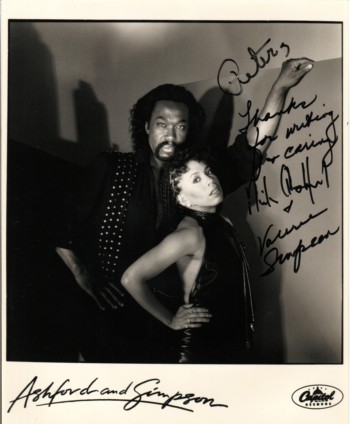 Pieter,
Thanks
for writing
for caring
&
Valerie
Simpson
Ashford and Simpson
Capitol
RECORDS